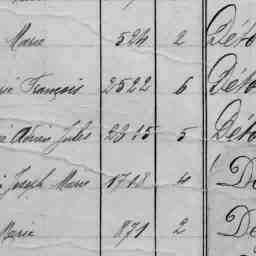 Marie 524 2 Déto
François 2522 6 Déto
Jules 2315 5 Déto
Joseph Marie 1718 4 De
Marie 871 2 De